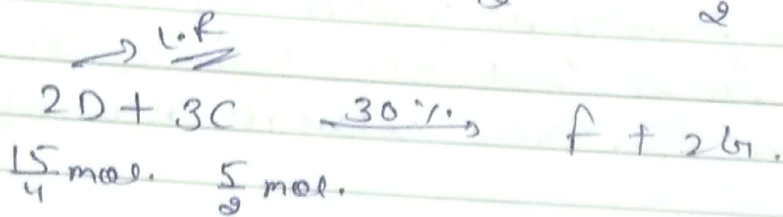 2
L.R
2D + 3C 30% → f + 2G.
15/4 mol. 5/2 mol.